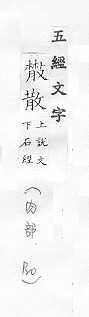 五經文字
𢿱散上說文
下石經
（肉部 80）